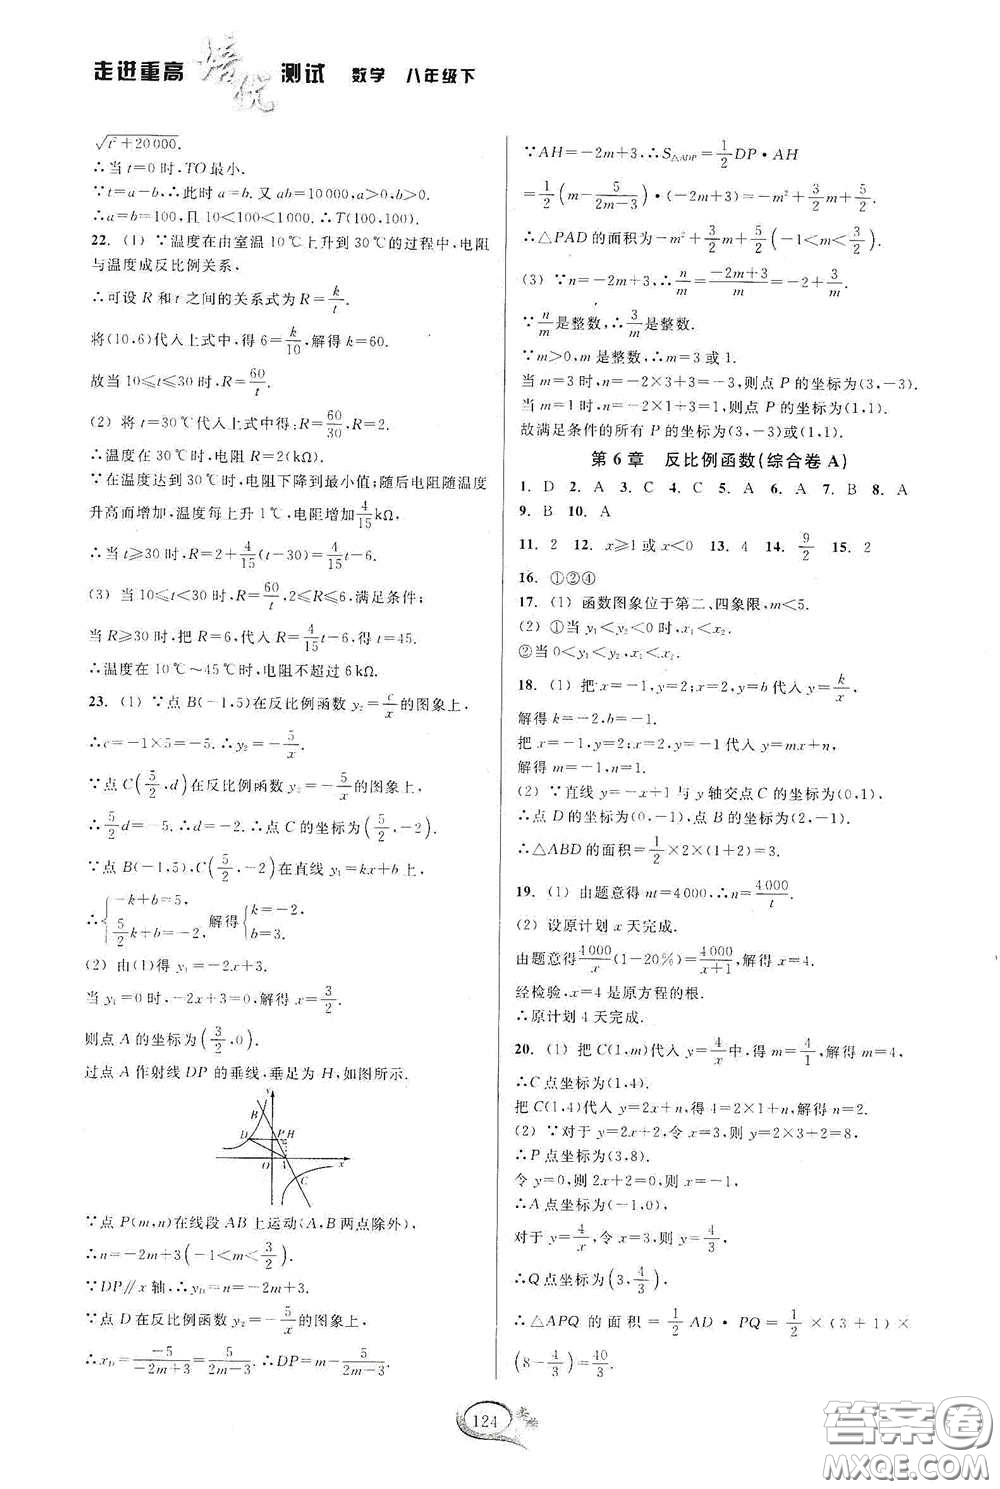 走进重高 培优 测试 数学 八年级下
√(t²+20000).
∴当 t=0 时,TO 最小.
∵t=a-b,∴此时 a=b. 又 ab=10000,a>0,b>0.
∴a=b=100,且 10<100<1000. ∴T(100,100).
22. (1) ∵温度在由室温 10℃上升到 30℃的过程中,电阻
与温度成反比例关系,
∴可设 R 和 t 之间的关系式为 R=k/t.
将(10,6)代入上式中,得 6=k/10,解得 k=60.
故当 10≤t≤30 时,R=60/t.
(2) 将 t=30℃代入上式中得:R=60/30,R=2.
∴温度在 30℃时,电阻 R=2(kΩ).
∵在温度达到 30℃时,电阻下降到最小值;随后电阻随温度
升高而增加,温度每上升 1℃,电阻增加 4/15 kΩ,
∴当 t≥30 时,R=2+4/15(t-30)=4/15t-6.
(3) 当 10≤t<30 时,R=60/t,2≤R≤6,满足条件;
当 R≥30 时,把 R=6,代入 R=4/15t-6,得 t=45.
∴温度在 10℃~45℃时,电阻不超过 6 kΩ.
23. (1) ∵点 B(-1,5)在反比例函数 y₂=c/x 的图象上,
∴c=-1×5=-5. ∴y₂=-5/x.
∵点 C(5/2,d)在反比例函数 y₂=-5/x 的图象上,
∴5/2d=-5. ∴d=-2. ∴点 C 的坐标为(5/2,-2).
∵点 B(-1,5),C(5/2,-2)在直线 y₁=kx+b 上,
∴{-k+b=5, 5/2k+b=-2, 解得{k=-2, b=3.
(2) 由(1)得 y₁=-2x+3.
当 y₁=0 时,-2x+3=0,解得 x=3/2.
则点 A 的坐标为(3/2,0).
过点 A 作射线 DP 的垂线,垂足为 H,如图所示.
y B D P H O A x C
∵点 P(m,n)在线段 AB 上运动(A,B 两点除外),
∴n=-2m+3(-1<m<3/2).
∵DP∥x 轴,∴y_D=n=-2m+3.
∵点 D 在反比例函数 y₂=-5/x 的图象上,
∴x_D=-5/(-2m+3)=5/(2m-3). ∴DP=m-5/(2m-3).
∵AH=-2m+3,∴S△ADP=1/2DP·AH
=1/2(m-5/(2m-3))·(-2m+3)=-m²+3/2m+5/2.
∴△PAD 的面积为-m²+3/2m+5/2(-1<m<3/2).
(3) ∵n=-2m+3,∴n/m=(-2m+3)/m=-2+3/m.
∵n/m是整数,∴3/m是整数.
∵m>0,m 是整数,∴m=3 或 1.
当 m=3 时,n=-2×3+3=-3,则点 P 的坐标为(3,-3).
当 m=1 时,n=-2×1+3=1,则点 P 的坐标为(1,1).
故满足条件的所有 P 的坐标为(3,-3)或(1,1).
第 6 章 反比例函数(综合卷 A)
1. D 2. A 3. C 4. C 5. A 6. A 7. B 8. A
9. B 10. A
11. 2 12. x≥1 或 x<0 13. 4 14. 9/2 15. 2
16. ①②④
17. (1) 函数图象位于第二、四象限,m<5.
(2) ①当 y₁<y₂<0 时,x₁<x₂.
②当 0<y₁<y₂,x₁<x₂.
18. (1) 把 x=-1,y=2;x=2,y=b 代入 y=k/x,
解得 k=-2,b=-1.
把 x=-1,y=2;x=2,y=-1 代入 y=mx+n,
解得 m=-1,n=1.
(2) ∵直线 y=-x+1 与 y 轴交点 C 的坐标为(0,1),
∴点 D 的坐标为(0,-1),点 B 的坐标为(2,-1).
∴△ABD 的面积=1/2×2×(1+2)=3.
19. (1) 由题意得 nt=4000,∴n=4000/t.
(2) 设原计划 x 天完成.
由题意得4000/x(1-20%)=4000/(x+1),解得 x=4.
经检验,x=4 是原方程的根.
∴原计划 4 天完成.
20. (1) 把 C(1,m)代入 y=4/x中,得 m=4/1,解得 m=4,
∴C 点坐标为(1,4).
把 C(1,4)代入 y=2x+n,得 4=2×1+n,解得 n=2.
(2) ∵对于 y=2x+2,令 x=3,则 y=2×3+2=8,
∴P 点坐标为(3,8).
令 y=0,则 2x+2=0,则 x=-1,
∴A 点坐标为(-1,0).
对于 y=4/x,令 x=3,则 y=4/3.
∴Q 点坐标为(3,4/3).
∴△APQ 的面积=1/2 AD·PQ=1/2×(3+1)×
(8-4/3)=40/3.
124
答案卷
MXQE.COM